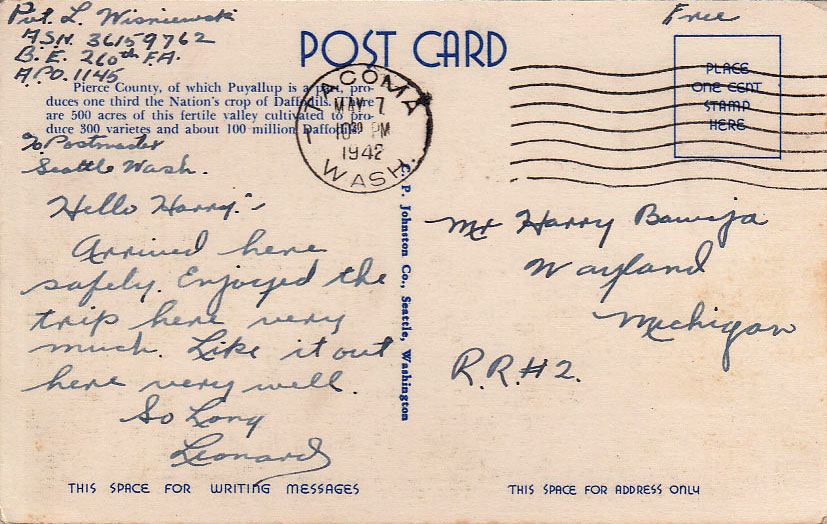 Pvt. L. Wisniewski
ASN. 36159762
B. E. 260th F.A.
A.P.O. 1145
Free
POST CARD
PLACE
ONE CENT
STAMP
HERE
TACOMA
MAY 7
10 30 PM
1942
WASH.
Pierce County, of which Puyallup is a part, pro-
duces one third the Nation's crop of Daffodils. There
are 500 acres of this fertile valley cultivated to pro-
duce 300 varietes and about 100 million Daffodils.
c/o Postmaster
Seattle Wash.
Hello Harry:-
Arrived here
safely. Enjoyed the
trip here very
much. Like it out
here very well.
So Long
Leonard
C. P. Johnston Co., Seattle, Washington
Mr Harry
Wayland
Michigan
R.R.#2.
THIS SPACE FOR WRITING MESSAGES
THIS SPACE FOR ADDRESS ONLY